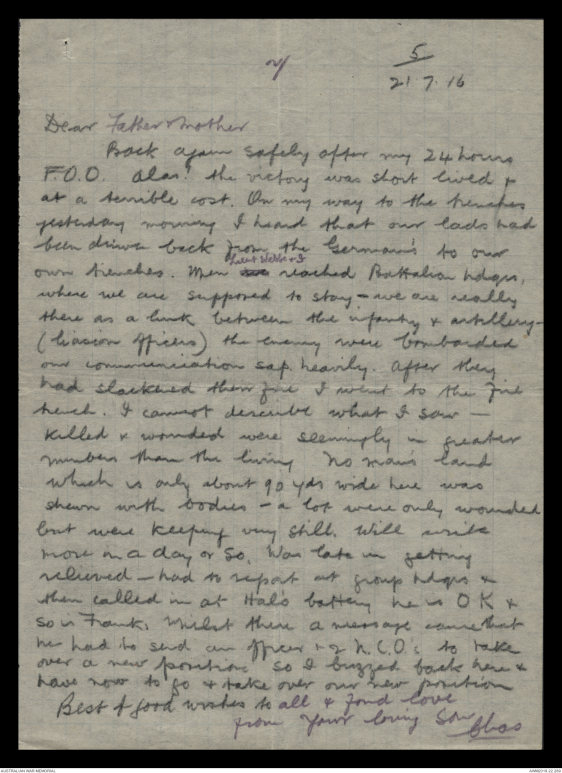 5
2/
21 7. 16
Dear Father & Mother
Back again safely after my 24 hours
F.O.O. Alas! the victory was short lived &
at a terrible cost. On my way to the trenches
yesterday morning I heard that our lads had
been driven back from the Germans to our
Lieut Webb & I
own trenches. When reached Battalion hdqrs,
where we are supposed to stay - we are really
there as a link between the infantry & artillery -
(liasion Officers) the enemy were bombarded
our communication sap heavily. After they
had slackened their fire I went to the fire
trench. I cannot describe what I saw -
Killed & wounded were seemingly in greater
numbers than the living No man's land
which is only about 90 yds wide here was
shewn with bodies - a lot were only wounded
but were keeping very still. Will write
more in a day or so. Was late in getting
relieved - had to report at group hdqrs &
then called in at Hal's battery he is O K &
so is Frank. Whilst there a message came that
he had to send an officer & 2 N.C.O.s to take
over a new position so I buzzed back here &
have now to go & take over our new position
Best & good wishes to all & fond love
from your loving Son
Chas
AUSTRALIAN WAR MEMORIAL